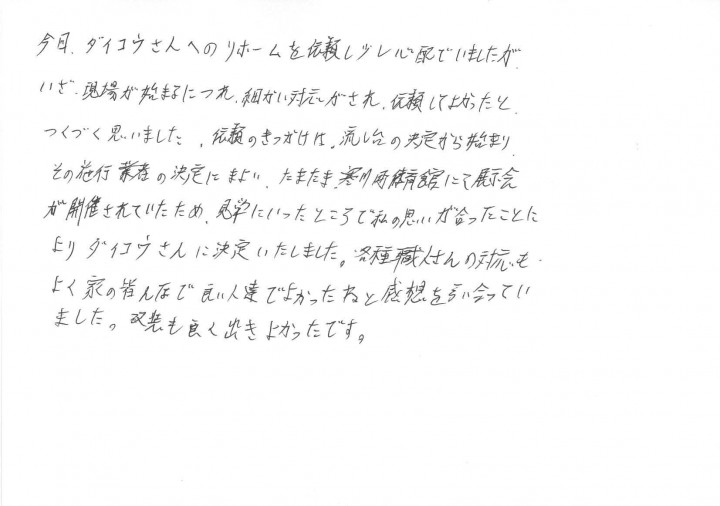 今日、ダイコウさんへのリホームを依頼し少し心配でいましたが、
いざ、現場が始まるにつれ、細かい対応がされ、依頼してよかったと、
つくづく思いました、依頼のきっかけは、流し台の決定から始まり、
その施行業者の決定にまよい、たまたま、寒川町体育館にて展示会
が開催されていたため、見学にいったところで私の思いが合ったことに
よりダイコウさんに決定いたしました。各種職人さんの対応も、
よく家の皆んなで良い人達でよかったねと感想を言い合ってい
ました。改装も良く出きよかったです。